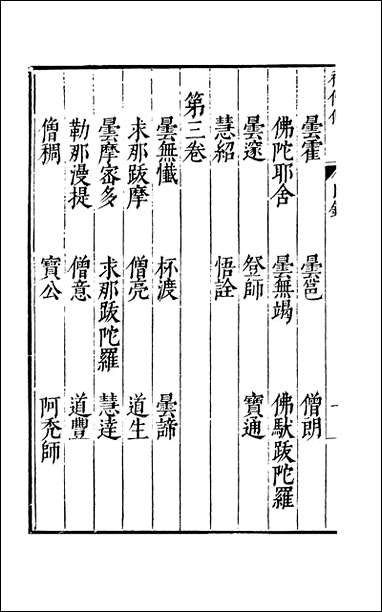 曇霍 曇邕 僧朗
佛陀耶舍 曇無竭 佛馱跋陀羅
曇邃 登師 寶通
慧紹 悟詮
第三卷
曇無懺 杯渡 曇諦
求那跋摩 僧亮 道生
曇摩密多 求那跋陀羅 慧達
勒那漫提 僧意 道豐
僧稠 寶公 阿禿師